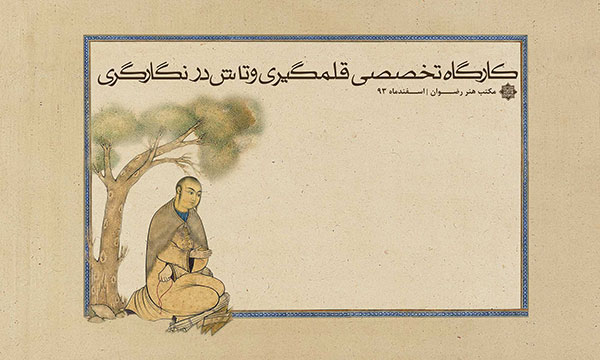 کارگاه تخصصی قلمگیری و تاش در نگارگری
مکتب هنر رضوان | اسفندماه ۹۳